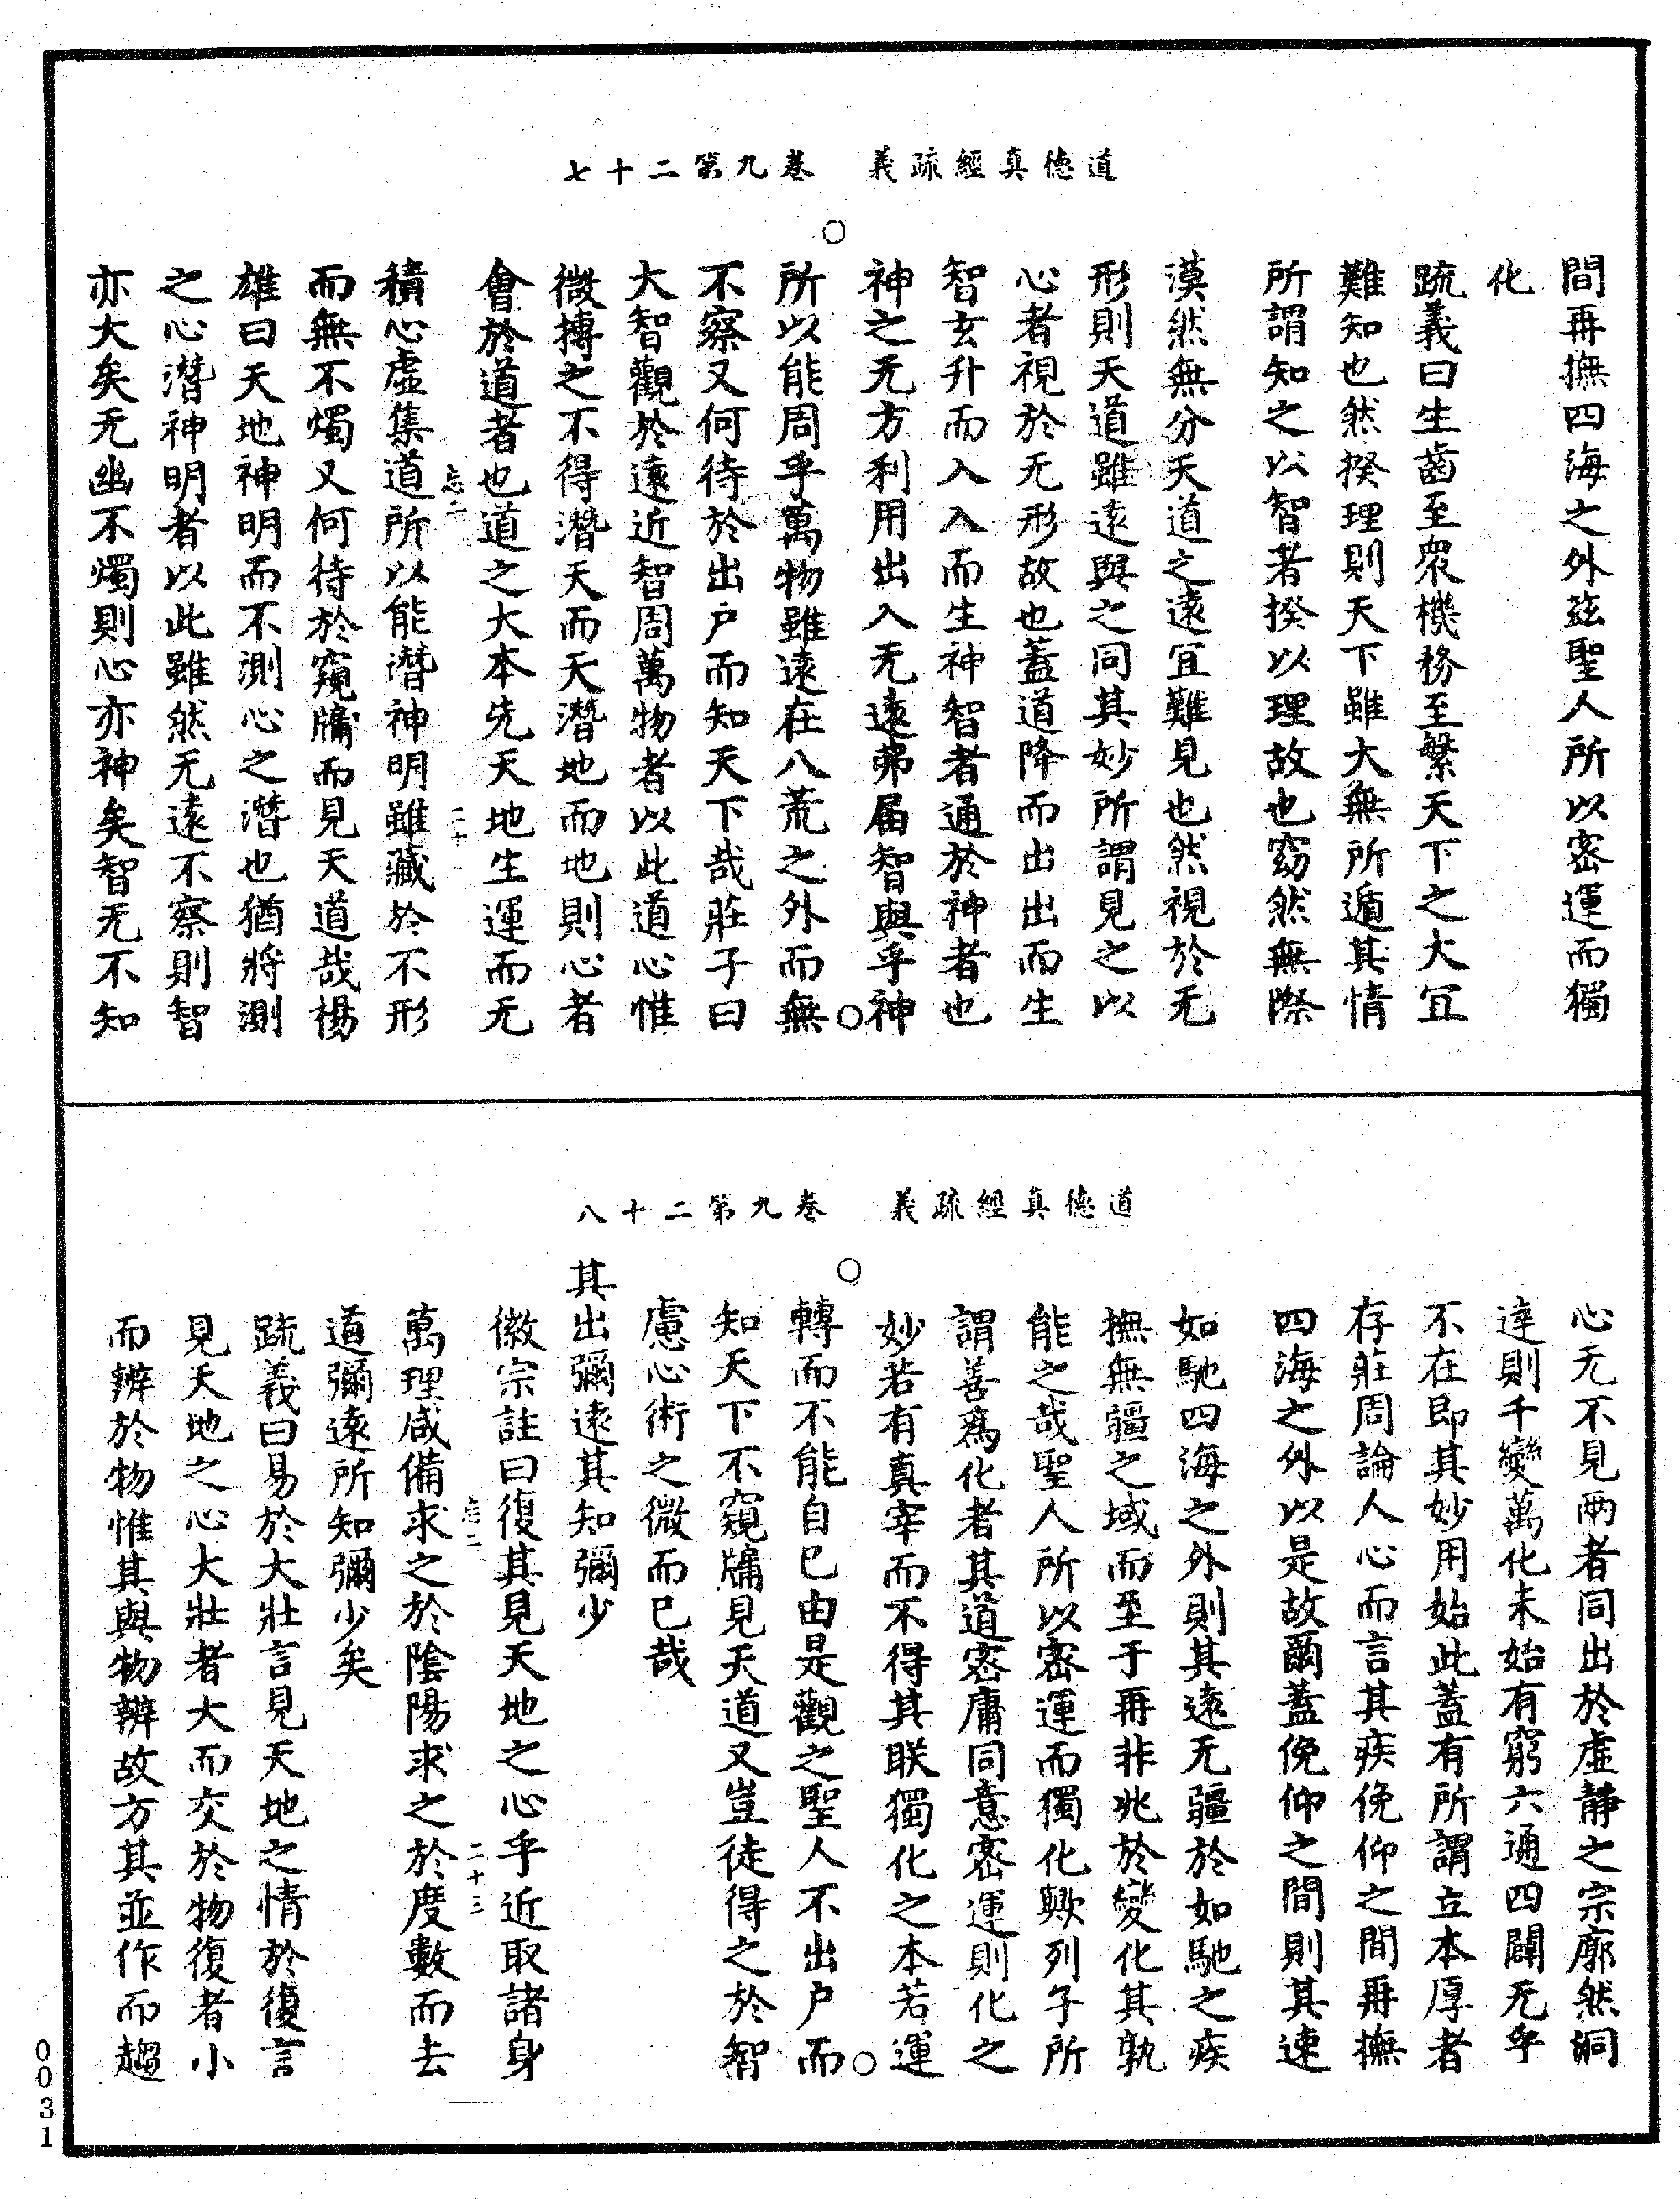 道德真經疏義　卷九第二十七
間再撫四海之外兹聖人所以密運而獨
化
疏義曰生齒至眾機務至繁天下之大冝
難知也然揆理則天下雖大無所遁其情
所謂知之以智者揆以理故也窈然無際
漠然無分天道之遠冝難見也然視於无
形則天道雖遠與之同其妙所謂見之以
心者視於无形故也蓋道降而出出而生
智玄升而入入而生神智者通於神者也
神之无方利用出入无遠弗届智與乎神
所以能周乎萬物雖遠在八荒之外而無
不察又何待於出户而知天下哉莊子曰
大智觀於遠近智周萬物者以此道心惟
微摶之不得潛天而天潛地而地則心者
會於道者也道之大本先天地生運而无
積心虛集道所以能潛神明雖藏於不形
而無不燭又何待於窺牖而見天道哉楊
雄曰天地神明而不測心之潛也猶將測
之心潛神明者以此雖然无遠不察則智
亦大矣无幽不燭則心亦神矣智无不知
道德真經疏義　卷九第二十八
心无不見兩者同出於虛靜之宗廓然洞
達則千變萬化未始有窮六通四闢无乎
不在即其妙用始此蓋有所謂立本厚者
存莊周論人心而言其疾俛仰之間再撫
四海之外以是故爾蓋俛仰之間則其速
如馳四海之外則其遠无疆於如馳之疾
撫無疆之域而至于再非兆於變化其孰
能之哉聖人所以密運而獨化歟列子所
謂善爲化者其道密庸同意密運則化之
妙若有真宰而不得其眹獨化之本若運
轉而不能自已由是觀之聖人不出户而
知天下不窺牖見天道又豈徒得之於智
慮心術之微而已哉
其出彌遠其知彌少
徽宗註曰復其見天地之心乎近取諸身
萬理咸備求之於陰陽求之於度數而去
道彌遠所知彌少矣
疏義曰易於大壯言見天地之情於復言
見天地之心大壯者大而交於物復者小
而辨於物惟其與物辨故方其並作而趨
0031